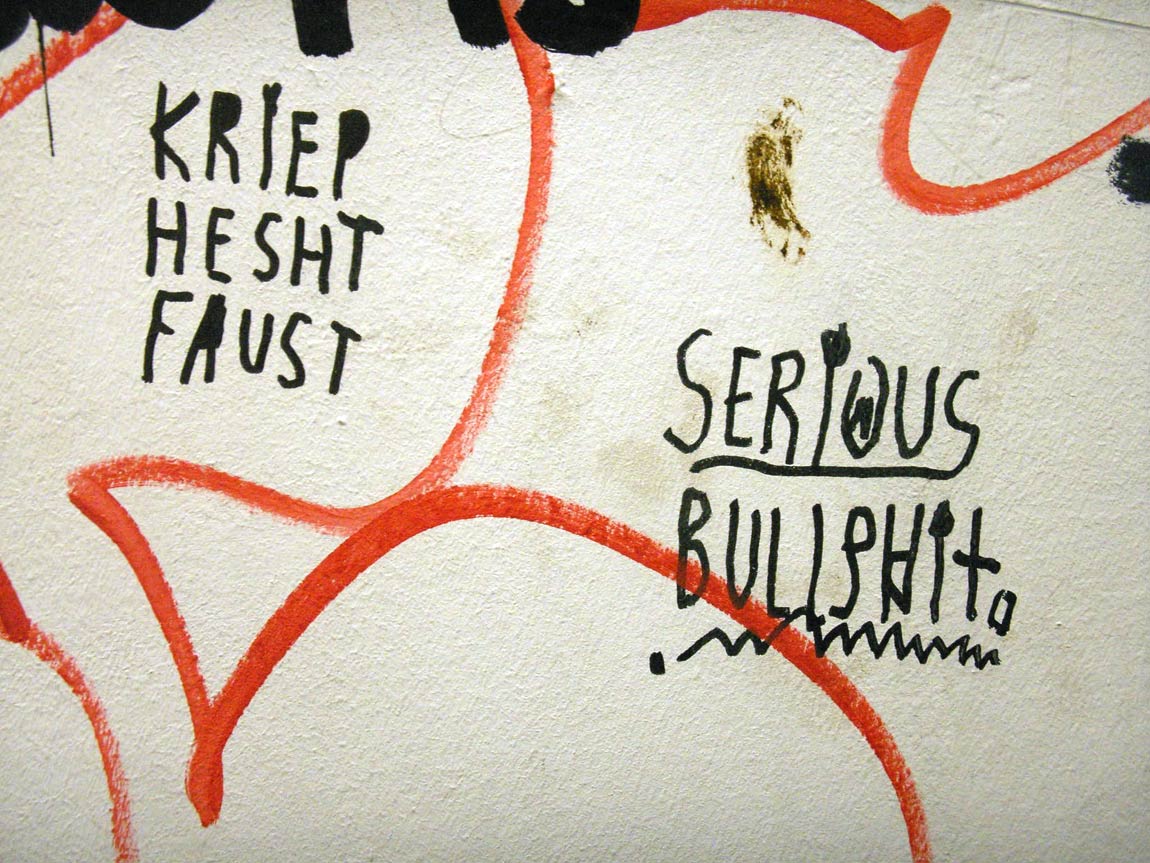 KRIEP
HESHT
FAUST
SERIOUS
BULLSHIT.